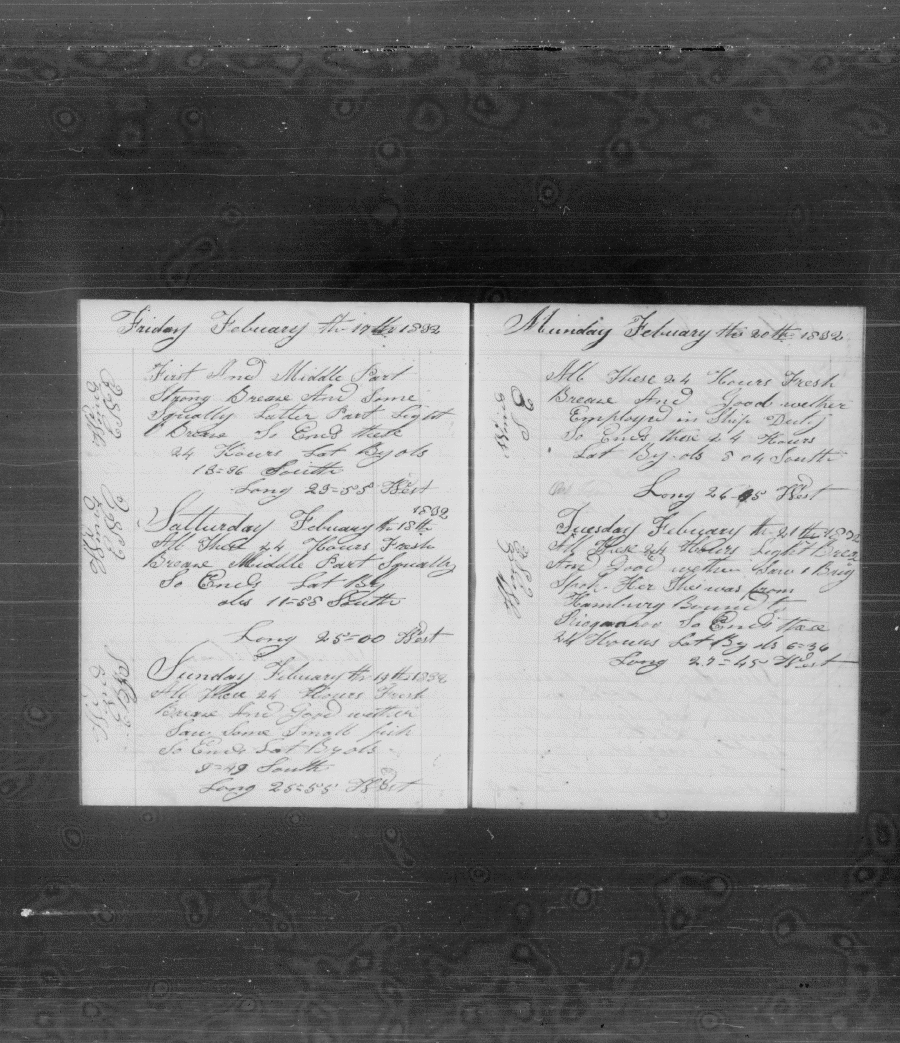 Friday Febuary th 17th 1832
Wind
ESE
First And Middle Part
Strong Brease And Some
Squally Latter Part Light
Brease So Ends these
24 Hours Lat By obs
13=36 South
Long 23=55 West
Satturday Febuary th 18th 1832
Wind
ESE
All These 24 Hours Fresh
Brease Middle Part Squally
So Ends Lat By
obs 11=55 South
Long 25=00 West
Sunday Febuary th 19th 1832
Wind
All These 24 Hours Fresh
Brease And Good wether
Saw Some Small fish
So Ends Lat By obs
9=49 South
Long 25=55 West
Munday Febuary the 20th 1832
Wind
SE
All These 24 Hours Fresh
Brease And Good wether
Employed in Ship Duty
So Ends these 24 Hours
Lat By obs 8 04 South
Long 26 05 West
Tuesday Febuary th 21th 1832
Wind
All These 24 Hours Light Breas
And Good wether Saw 1 Brig
Spok Her She was from
Hamburg Bound to
So Ends these
24 Hours Lat By obs 6=36
Long 27=45 West